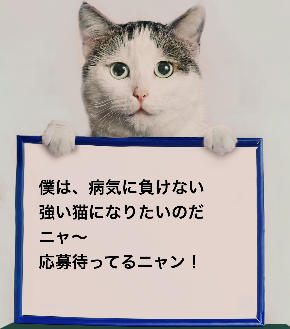 僕は、病気に負けない
強い猫になりたいのだ
ニャ〜
応募待ってるニャン！